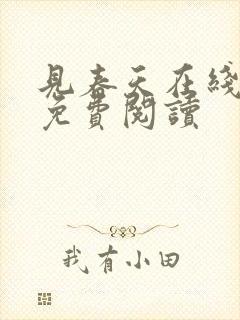 見春天在綫
免費閱讀
我有小田